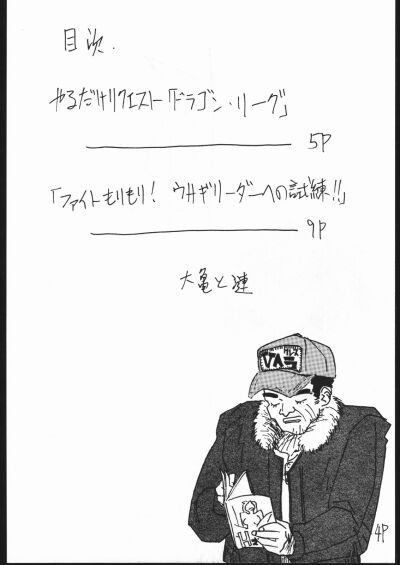 目次.
やるだけリクエスト「ドラゴン・リーグ」
5P
「ファイトもりもり! ウサギリーダーへの試練!!」
9P
大亀と連
VAS
4P